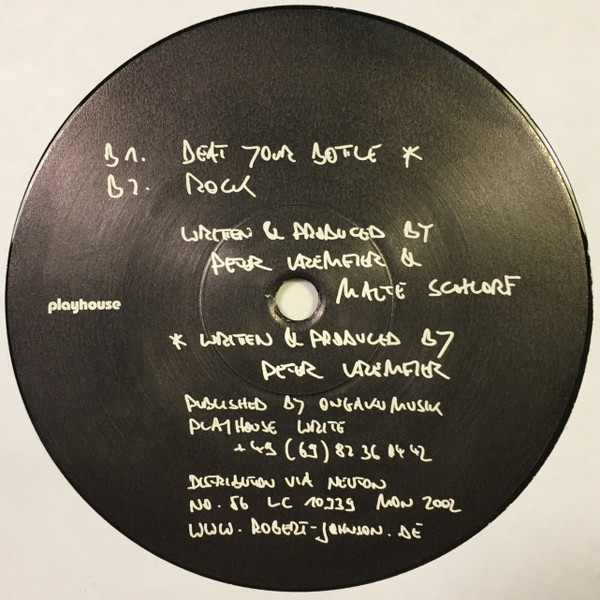 B1. BEAT YOUR BOTTLE *
B2. ROCK
WRITTEN & PRODUCED BY
PETER KREMEIER &
MALTE SCHLORF
playhouse
* WRITTEN & PRODUCED BY
PETER KREMEIER
PUBLISHED BY ONGAKU MUSIK
PLAYHOUSE WRITE
+49 (69) 82 36 04 42
DISTRIBUTION VIA NEUTON
NO. 56 LC 10939 MON 2002
WWW.ROBERT-JOHNSON.DE